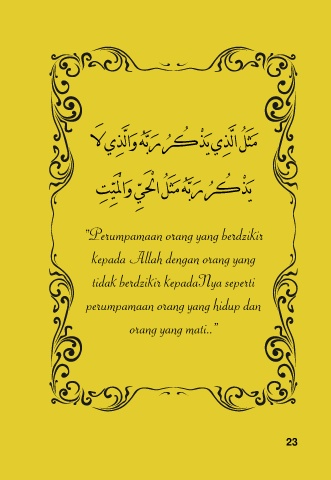 مَثَلُ الَّذِي يَذْكُرُ رَبَّهُ وَالَّذِي لَا
يَذْكُرُ رَبَّهُ مَثَلُ الْحَيِّ وَالْمَيِّتِ
"Perumpamaan orang yang berdzikir
kepada Allah dengan orang yang
tidak berdzikir kepadaNya seperti
perumpamaan orang yang hidup dan
orang yang mati.."
23